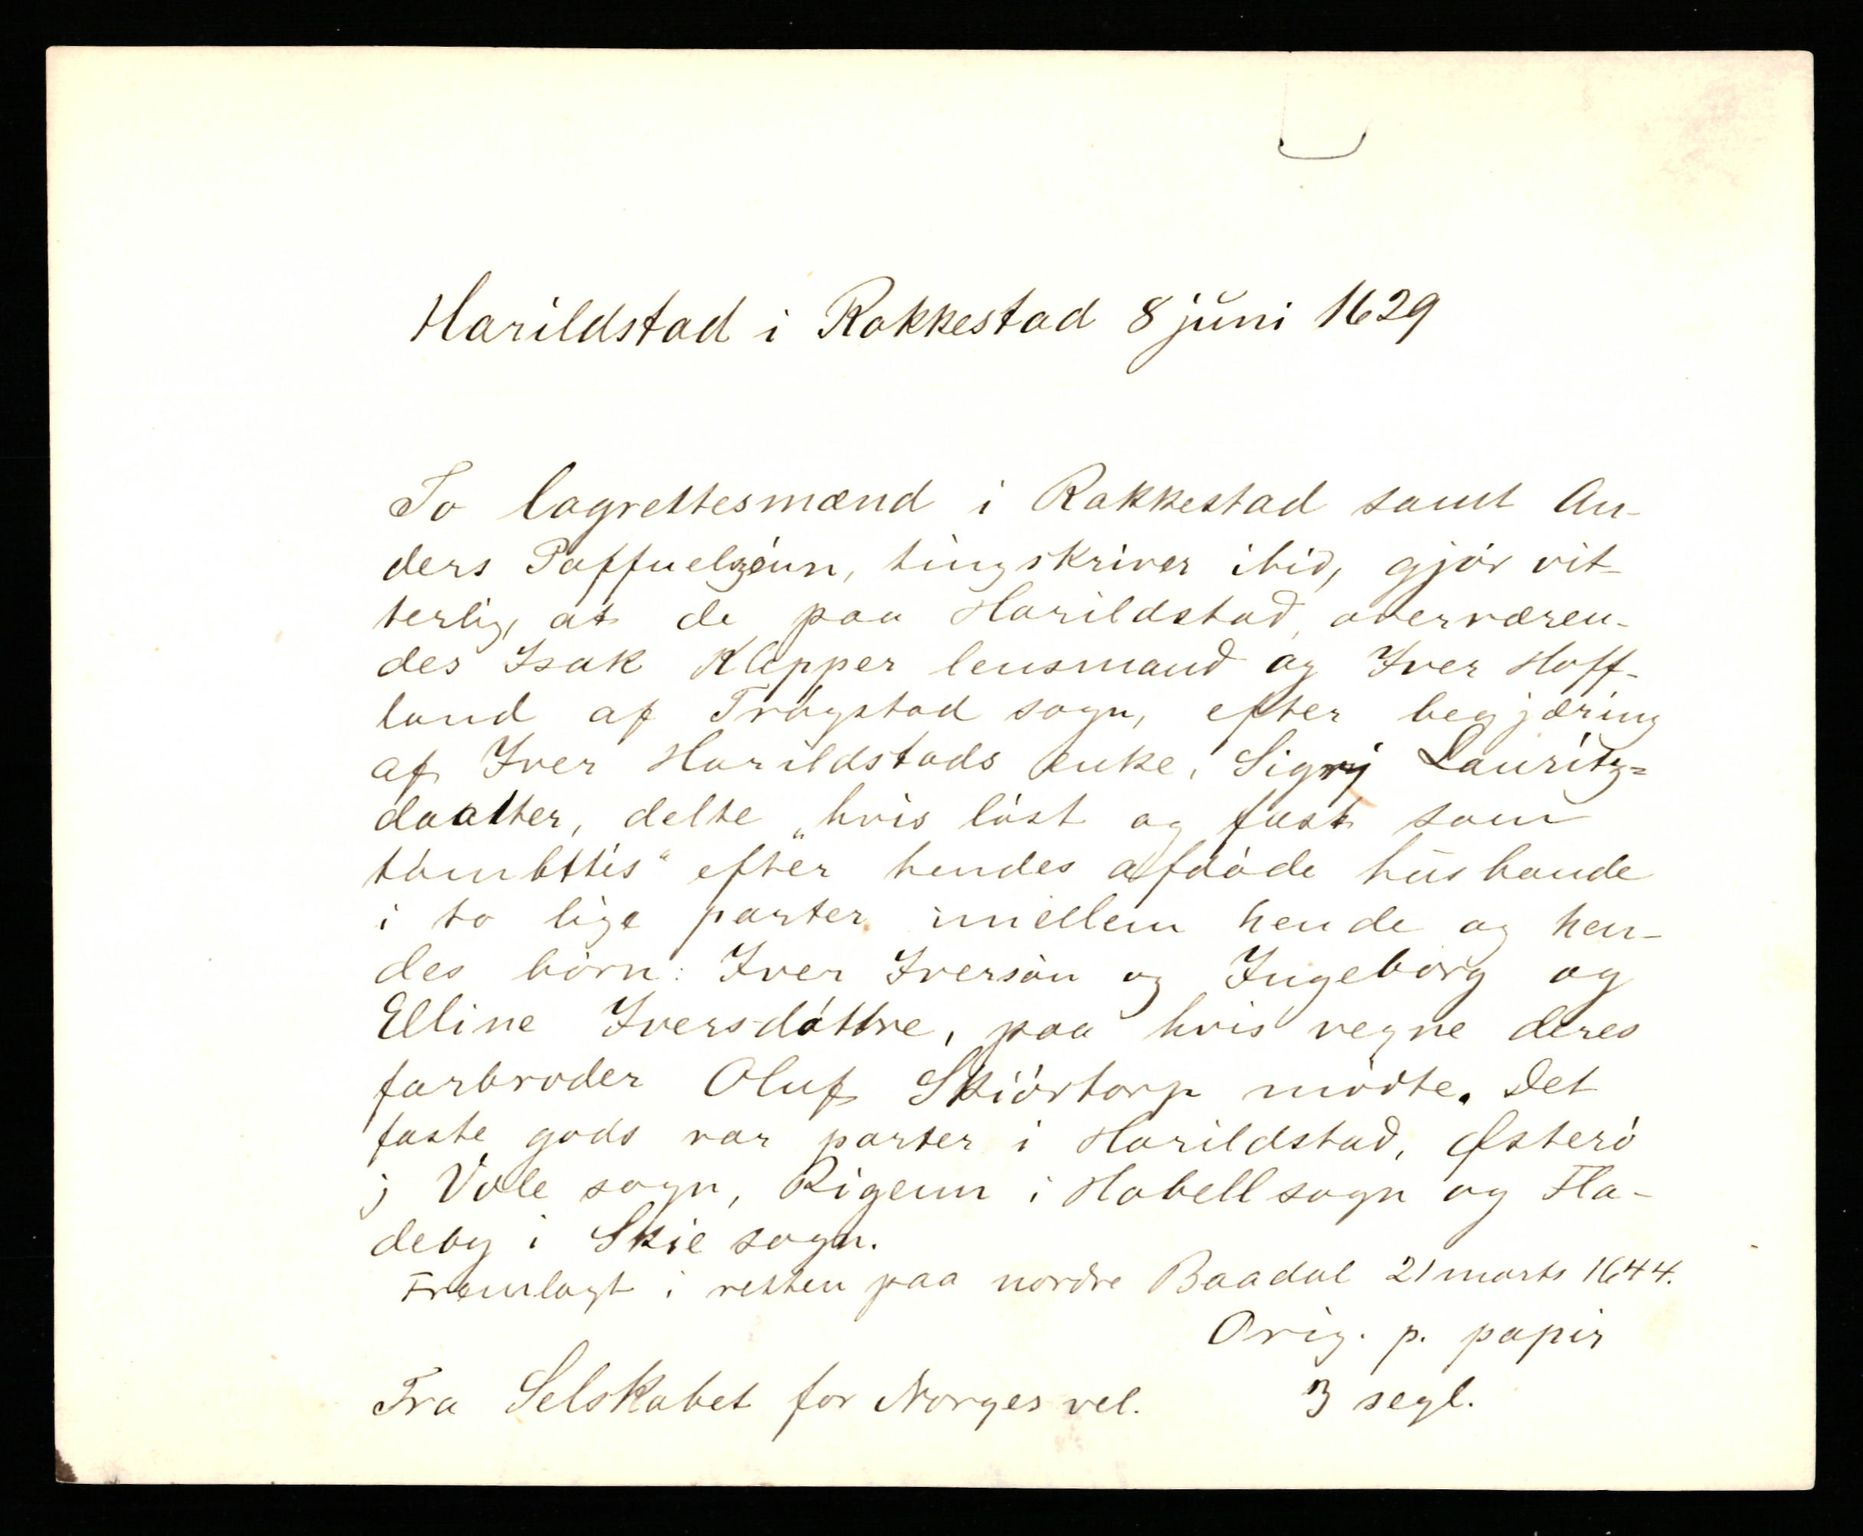 Harildstad i Rakkestad 8 juni 1629
To lagrettesmænd i Rakkestad samt An-
ders Paffuelzönn, tingskriver ibid, gjör vit-
terlig, at de paa Harildstad, overværen-
des Isak Klepper lensmand og Iver Hoff-
land af Trögstad sogn, efter begjæring
af Iver Harildstads enke, Sigrj Lauritz-
daatter, delte „hvis löst og fast som
tömbttis“ efter hendes afdöde husbonde
i to lige parter imellem hende og hen-
des börn: Iver Iversön og Ingeborg og
Elline Iversdöttre, paa hvis vegne deres
farbroder Oluf Skiörtorp mödte. Det
faste gods var parter i Harildstad, Østerö
j Vole sogn, Rigenn i Hobell sogn og Fla-
deby i Skie sogn.
Fremlagt i retten paa nordre Baadal 21 marts 1644.
Orig. p. papir
Fra Selskabet for Norges vel. 3 segl.